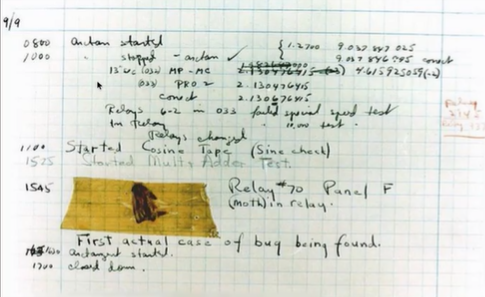 9/9
0800 arctan started { 1.2700 9.037 847 025
1000 " stopped - arctan ✓ 9.037 846 795 correct
13"uc (032) MP - MC 2.130476415 4.615925059(-2)
(033) PRO 2 2.130476415
correct 2.130676415
Relays 6-2 in 033 failed special speed test
in relay " 10,000 test.
Relays changed
1100 Started Cosine Tape (Sine check)
1525 Started Mult+Adder Test.
1545 Relay #70 Panel F
(moth) in relay.
First actual case of bug being found.
1630 arctangent started.
1700 closed down.